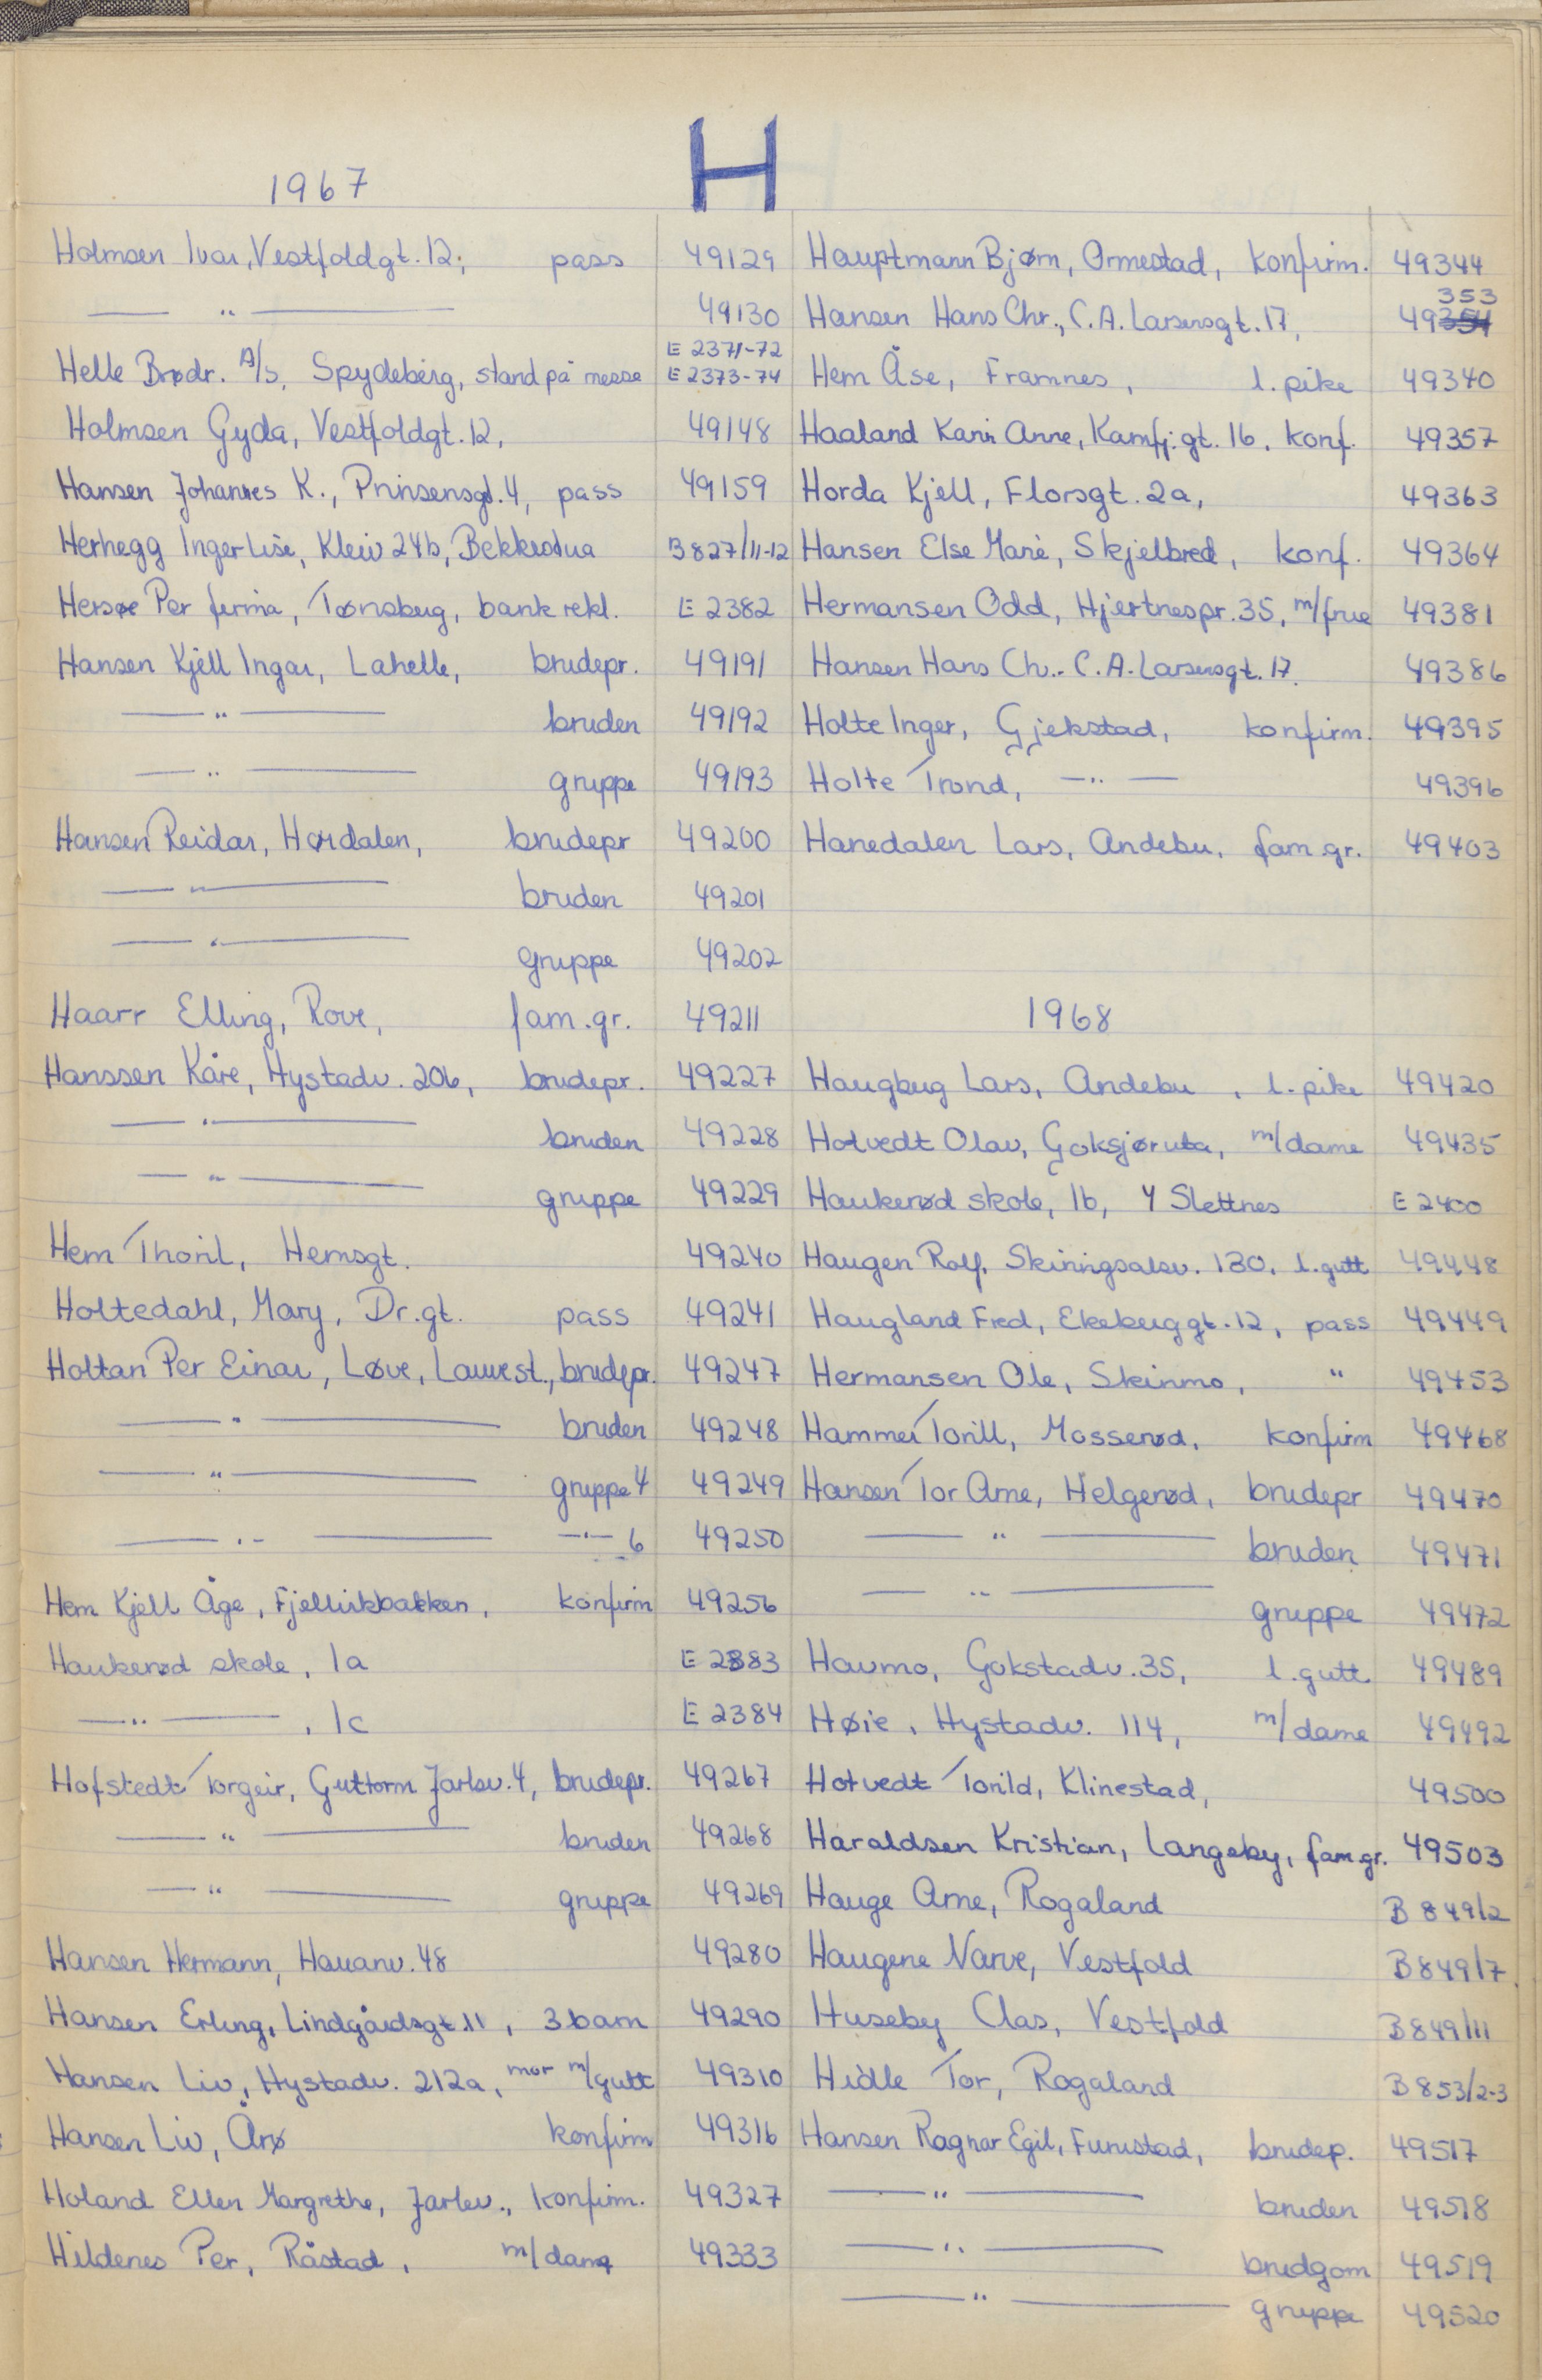 H
1967
Holmsen Ivar, Vestfoldgt. 12, pass 49129
— " — 49130
Helle Brødr. A/S, Spydeberg, stand på messe E 2371-72 E 2373-74
Holmsen Gyda, Vestfoldgt. 12, 49148
Hansen Johannes K., Prinsensgt. 4, pass 49159
Herhegg Inger Lise, Kleiv 24b, Bekkestua B 827/11-12
Hersøe Per firma, Tønsberg, bank rekl. E 2382
Hansen Kjell Ingar, Lahelle, brudepr. 49191
— " — bruden 49192
— " — gruppe 49193
Hansen Reidar, Hørdalen, brudepr 49200
— " — bruden 49201
— " — gruppe 49202
Haarr Elling, Rove, fam.gr. 49211
Hanssen Kåre, Hystadv. 206, brudepr. 49227
— " — bruden 49228
— " — gruppe 49229
Hem Thoril, Hemsgt. 49240
Holtedahl, Mary, Dr.gt. pass 49241
Holtan Per Einar, Løve, Lauvest., brudepr. 49247
— " — bruden 49248
— " — gruppe 4 49249
— " — — " — 6 49250
Hem Kjell Åge, Fjellvikbakken, konfirm 49256
Haukerød skole, 1a E 2383
— " — , 1c E 2384
Hofstedt Torgeir, Guttorm Jarlsv. 4, brudepr. 49267
— " — bruden 49268
— " — gruppe 49269
Hansen Hermann, Hauanv. 48 49280
Hansen Erling, Lindgårdsgt. 11, 3 barn 49290
Hansen Liv, Hystadv. 212a, mor m/gutt 49310
Hansen Liv, Årø konfirm 49316
Holand Ellen Margrethe, Jarlsv., konfirm. 49327
Hildenes Per, Råstad, m/dame 49333
Hauptmann Bjørn, Ormestad, konfirm. 49344
Hansen Hans Chr., C.A. Larsensgt. 17, 49354 353
Hem Åse, Framnes, l. pike 49340
Haaland Karin Anne, Kamfj.gt. 16, konf. 49357
Horda Kjell, Florsgt. 2a, 49363
Hansen Else Marie, Skjelbred, konf. 49364
Hermansen Odd, Hjertnespr. 35, m/frue 49381
Hansen Hans Ch. C.A. Larsensgt. 17. 49386
Holte Inger, Gjekstad, konfirm. 49395
Holte Trond, — " — 49396
Hanedalen Lars, Andebu, fam.gr. 49403
1968
Haugberg Lars, Andebu, l. pike 49420
Hotvedt Olav, Goksjøruta, m/dame 49435
Haukerød skole, 1b, Y Slettnes E 2400
Haugen Rolf, Skiringsalsv. 130, l. gutt 49448
Haugland Fred, Ekeberggt. 12, pass 49449
Hermansen Ole, Skinmo, " 49453
Hammer Torill, Mosserød, konfirm 49468
Hansen Tor Arne, Helgerød, brudepr 49470
— " — bruden 49471
— " — gruppe 49472
Haumo, Gokstadv. 35, l. gutt 49489
Høie, Hystadv. 114, m/dame 49492
Hotvedt Torild, Klinestad, 49500
Haraldsen Kristian, Langeby, fam.gr. 49503
Hauge Arne, Rogaland B 849/2
Haugene Narve, Vestfold B 849/7
Huseby Clas, Vestfold B 849/11
Hidle Tor, Rogaland B 853/2-3
Hansen Ragnar Egil, Furustad, brudep. 49517
— " — bruden 49518
— " — brudgom 49519
— " — gruppe 49520